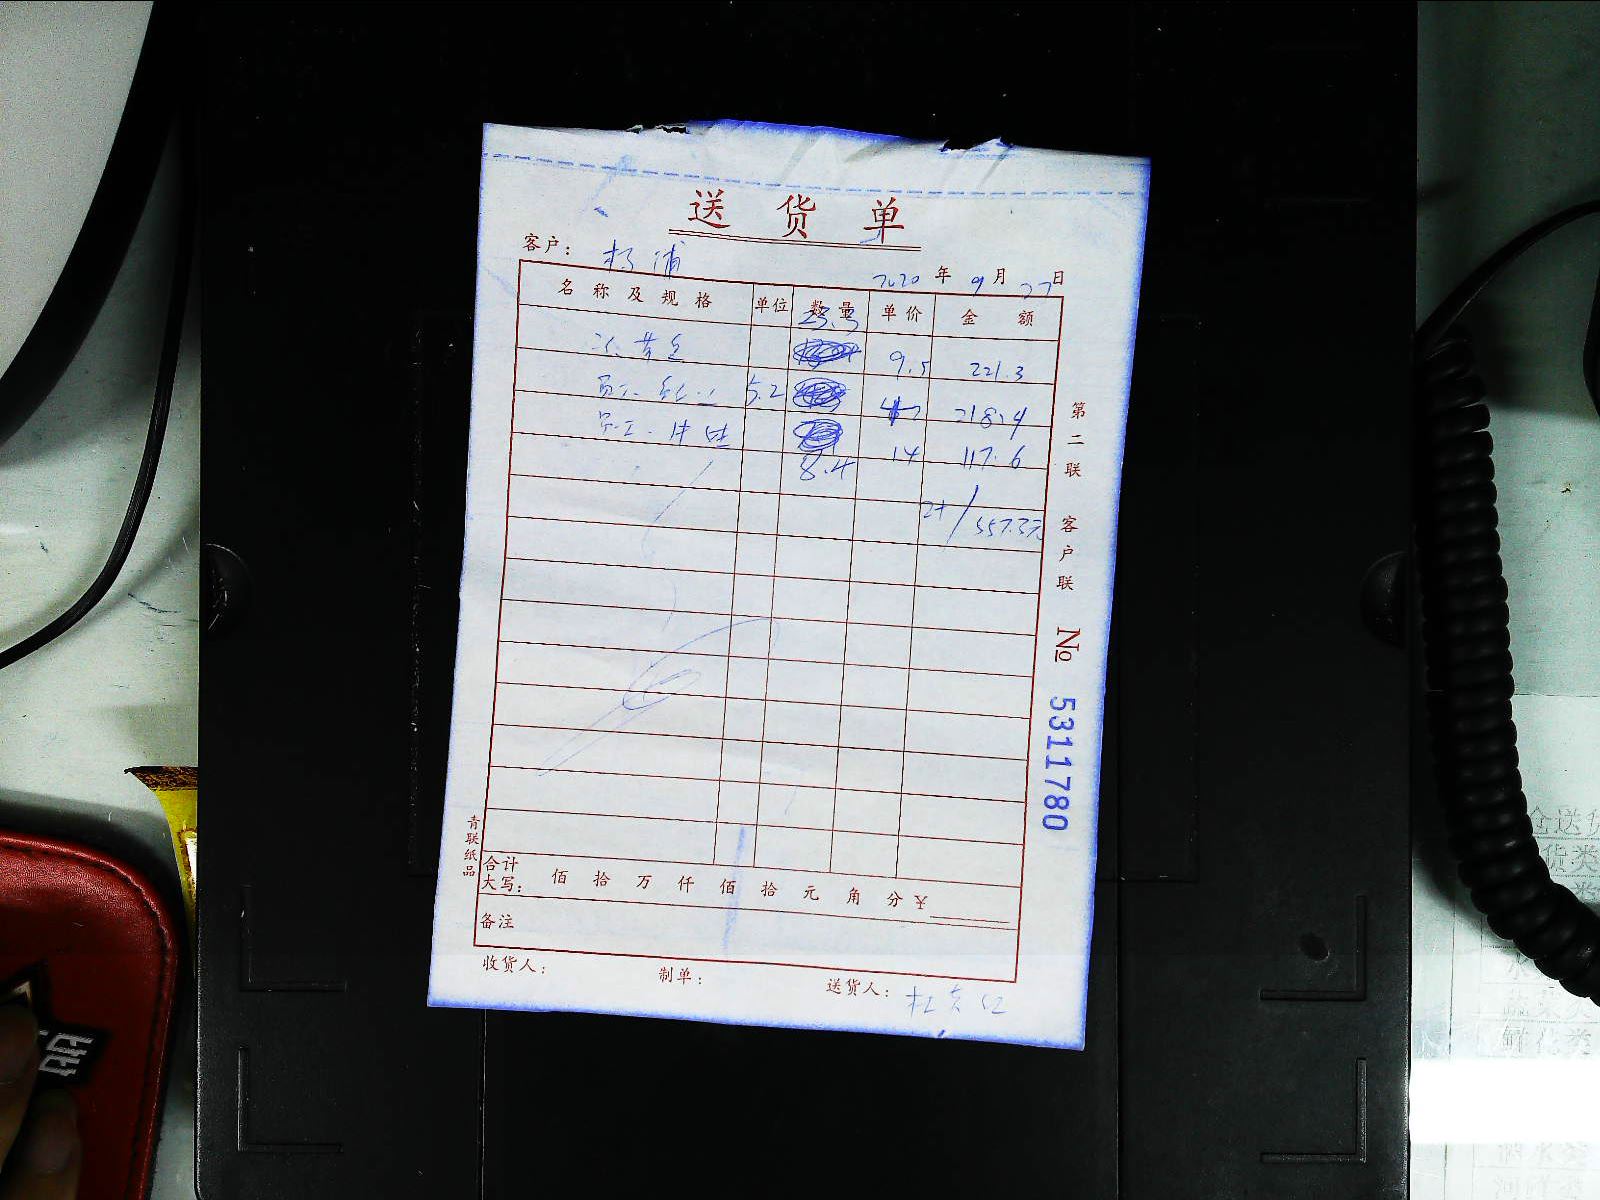 送货单
客户： 杨浦
2020 年 9 月 27 日
名称及规格 单位 数量 单价 金额
23.3
9.5 221.3
员工 5.2 218.4
员工 14 117.6
8.4
557.3元
合计
大写： 佰 拾 万 仟 佰 拾 元 角 分 ¥
备注
收货人： 制单： 送货人： 杜
第二联 客户联 № 5311780
青联纸品
仓送货
货类
蔬菜类
鲜花类
酒水类